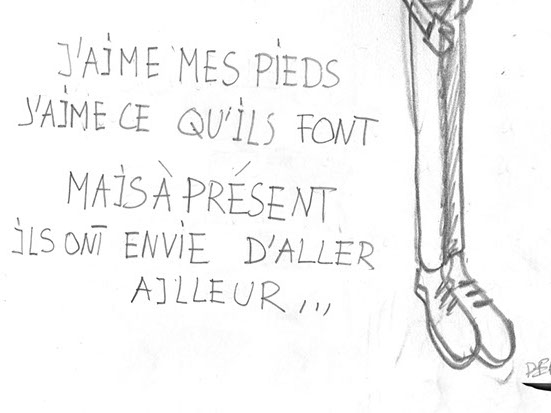 J'AIME MES PIEDS
J'AIME CE QU'ILS FONT
MAIS À PRÉSENT
ILS ONT ENVIE D'ALLER
AILLEUR...